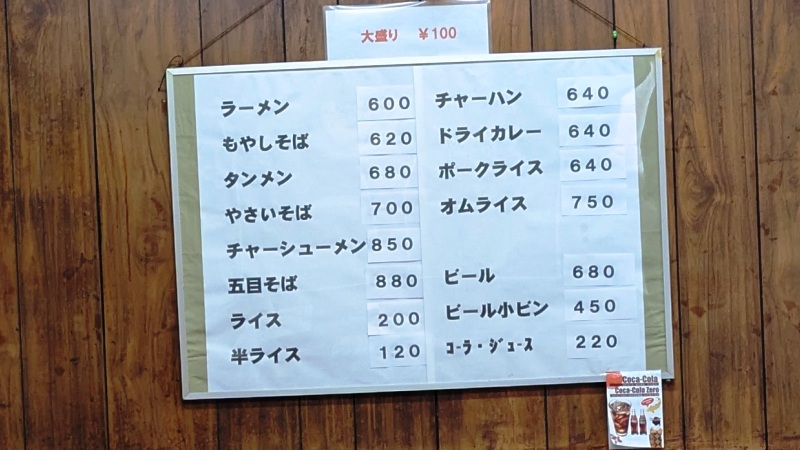 大盛り ￥100
ラーメン 600
もやしそば 620
タンメン 680
やさいそば 700
チャーシューメン 850
五目そば 880
ライス 200
半ライス 120
チャーハン 640
ドライカレー 640
ポークライス 640
オムライス 750
ビール 680
ビール小ビン 450
ｺｰﾗ・ｼﾞｭｰｽ 220
Coca-Cola
Coca-Cola Zero